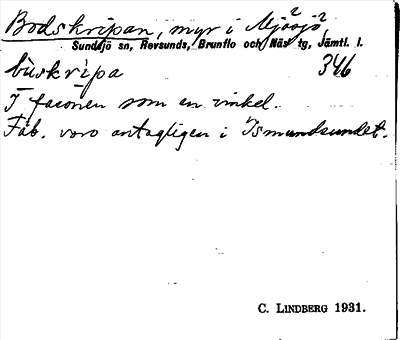 Bodskripan, myr i Mjösjö
Sundsjö sn, Revsunds, Brunflo och Näs tg, Jämtl. l.
bùskri̇pa 346
I faconen som en vinkel.
Fäb. voro antagligen i Ismundsundet.
C. LINDBERG 1931.